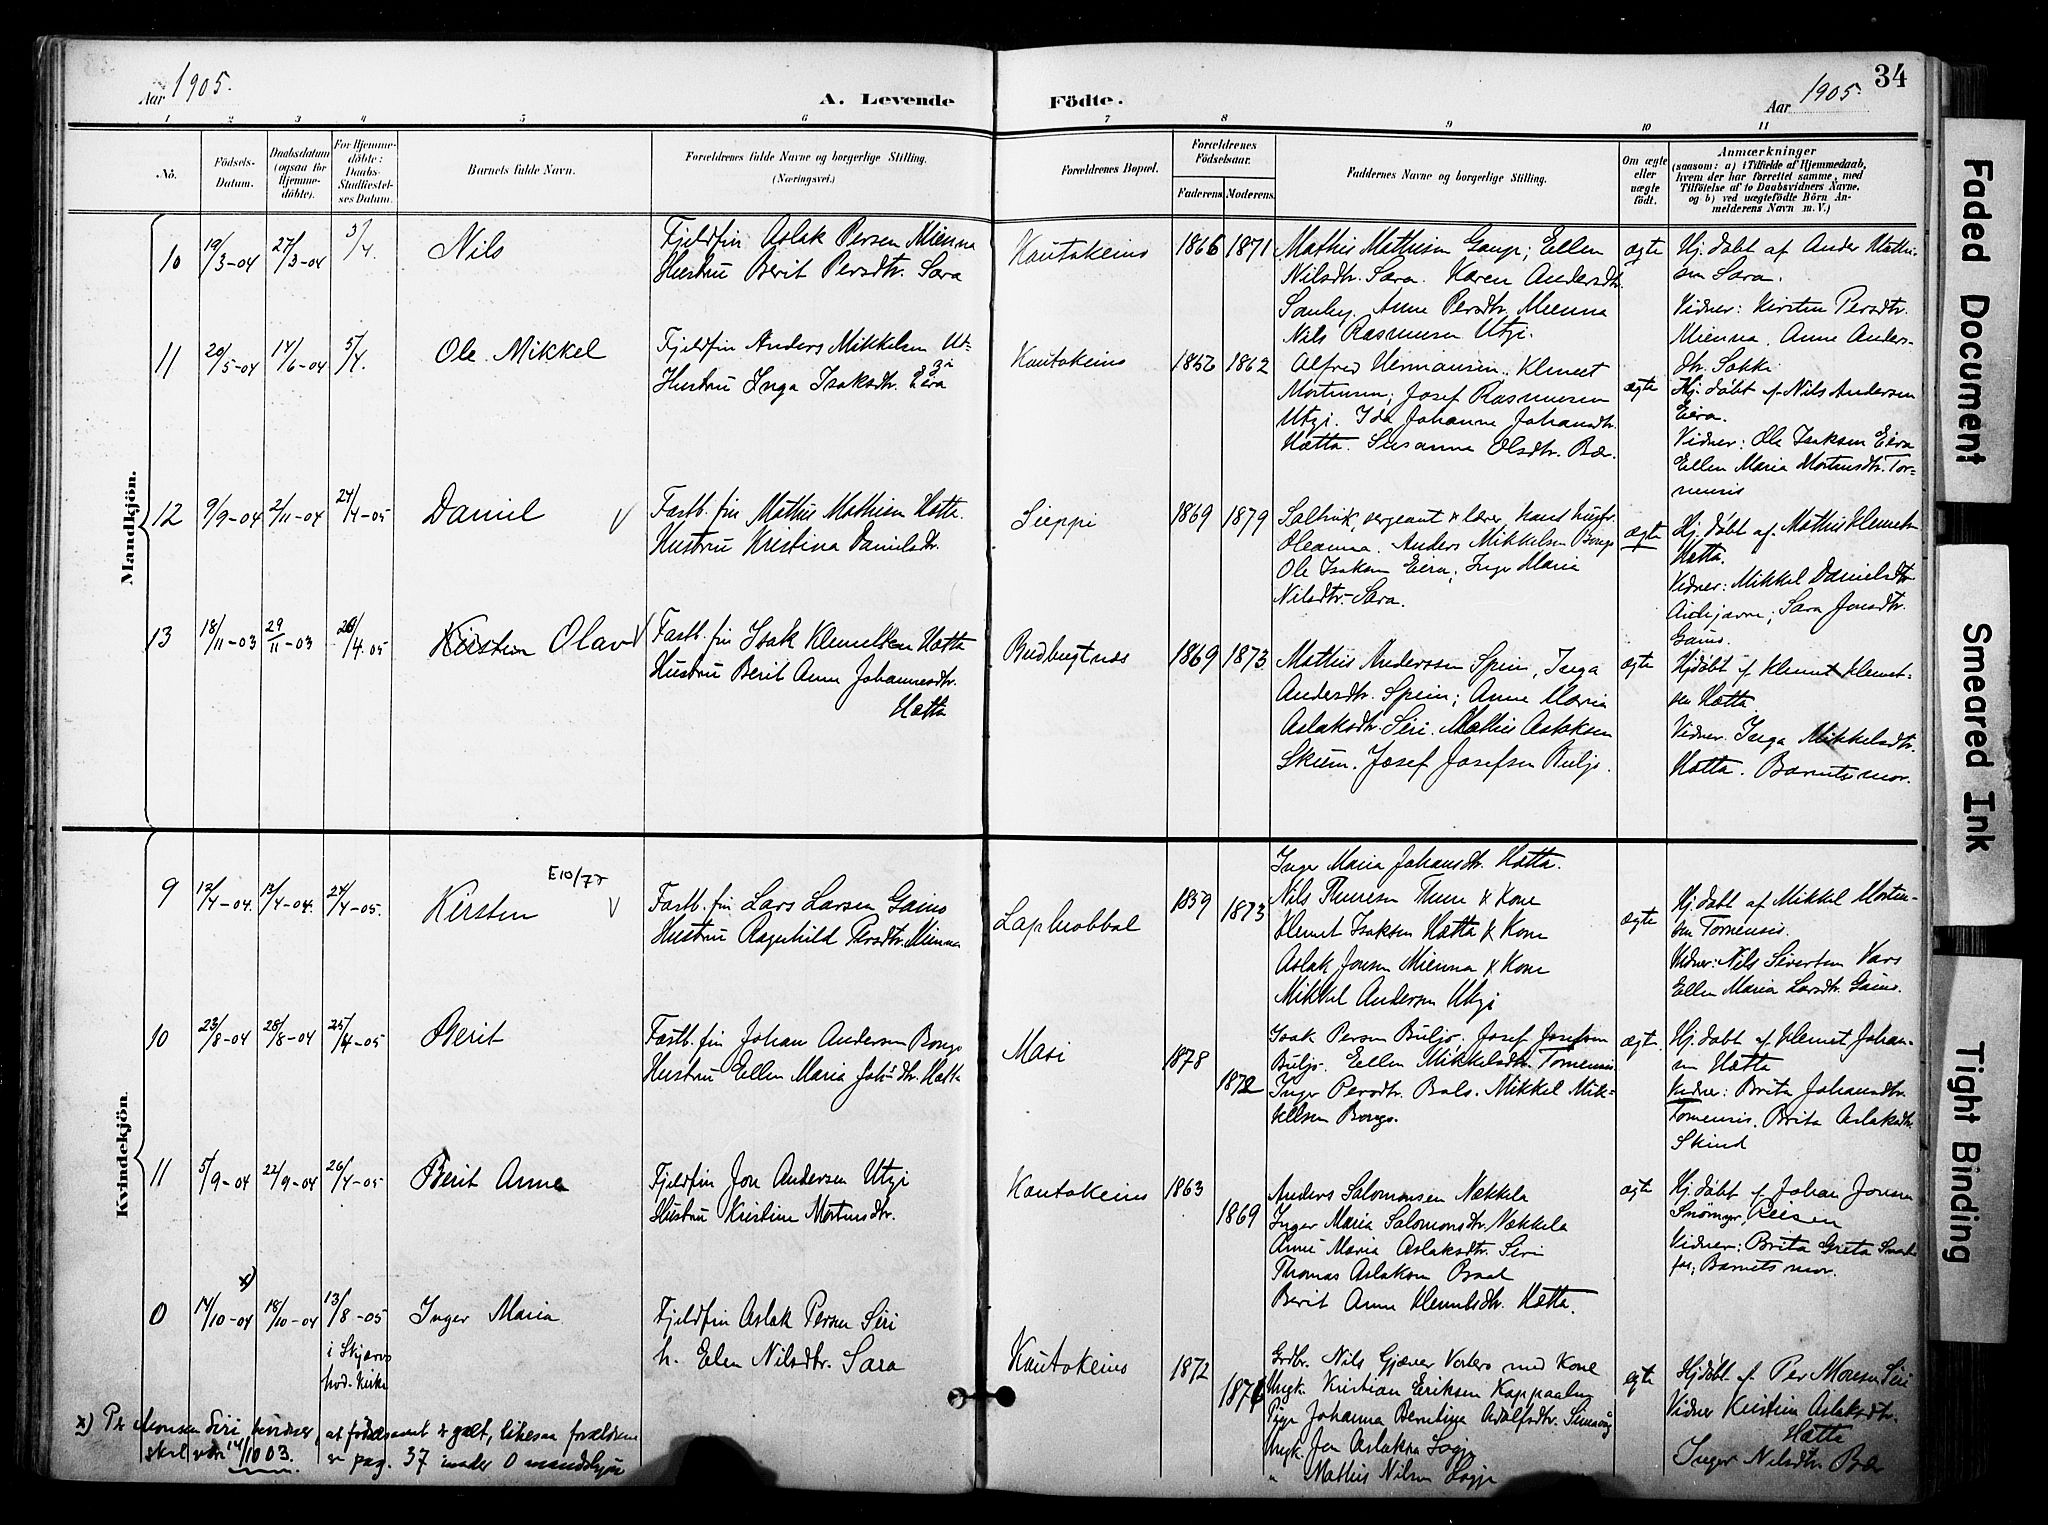 34
Aar 1905.
A. Levende Födte.
Aar 1905.
1 2 3 4 5 6 7 8 9 10 11
No.
Födsels-
Datum.
Daabsdatum
(ogsaa for
Hjemme-
döbte).
For Hjemme-
döbte:
Daabs-
Stadfæstel-
ses Datum.
Barnets fulde Navn.
Forældrenes fulde Navne og borgerlige Stilling.
(Næringsvei.)
Forældrenes Bopæl.
Forældrenes
Födselsaar.
Faderens Moderens
Faddernes Navne og borgerlige Stilling.
Om ægte
eller
uægte
födt.
Anmærkninger
(saasom: a) i Tilfælde af Hjemmedaab,
hvem der har forrettet samme, med
Tilföielse af to Daabsvidners Navne,
og b) ved uægtefödte Börn An-
melderens Navn m. V.)
Mandkjön.
10
19/3-04
27/3-04
3/4.
Nils
Fjeldfin Aslak Persen Mienna
Hustru Berit Persdtr. Sara
Kautokeino
1866 1871
Mathis Mathisen Gaup; Ellen
Nilsdtr. Sara. Karen Andersdtr.
Somby. Anne Persdtr. Mienna
Nils Rasmusen Utzi.
ægte
Hj. döbt af Anders Mathi-
sen Sara.
Vidner: Kirsten Persdtr.
Mienna, Anne Anders-
dtr. Sokki
11
20/5-04
14/6-04
5/4.
Ole Mikkel
Fjeldfin Anders Mikkelsen Ut-
zi
Hustru Inga Isaksdtr. Eira
Kautokeino
1852 1862
Alfred Hermansen, Klemet
Mortensen; Josef Rasmusen
Utzi. Ida Johanne Johansdtr.
Hætta. Susanna Olsdtr. Bæ.
ægte
Hj. döbt af Nils Andersen
Eira.
Vidner: Ole Isaksen Eira
Ellen Maria Mortensdtr. Tor-
nensis
12
9/9-04
2/11-04
24/4-05
Daniel
Fastb. fin Mathis Mathisen Hætta.
Hustru Kristina Danielsdtr.
Sieppi
1869 1879
sergeant & lærer, hans hustr.
Oleanna. Anders Mikkelsen Bongo
Ole Isaksen Eira; Inger Maria
Nilsdtr. Sara.
ægte
Hj. döbt af Mathis Klemets.
Hætta.
Vidner: Mikkel Danielsdtr
Sara Jonsdtr.
Gaino.
13
18/11-03
29/11-03
23/4.05
Kirsten Olav
Fastb. fin Isak Klemetsen Hætta
Hustru Berit Anne Johannesdtr.
Hætta
1869 1873
Mathis Anderssen Spein, Inga
Andersdtr. Spein; Anne Maria
Aslaksdtr. Siri. Mathis Aslaksen
Skum. Josef Josefsen Buljo.
ægte
Hjdöbt af Klemet Klemet-
sen Hætta.
Vidner. Inga Mikkelsdtr.
Hætta. Barnets mor.
Kvindekjön.
9
12/4-04.
13/4-04.
24/4-05.
E10/77
Kirsten
Fastb. fin Lars Larsen Gaino
Hustru Ragnhild Persdtr. Mienna
Lapluobbal
1859 1873
Inger Maria Johansdtr. Hætta.
Nils Thuresen Thure & Kone
Klemet Isaksen Hætta & Kone
Aslak Jonsen Mienna & Kone
Mikkel Andersen Utzi
ægte
Hj. döbt af Mikkel Morten-
sen Tornensis.
Vidner: Nils Sivertsen Vars
Ellen Maria Larsdtr. Gaino.
10
23/8-04
28/8-04
25/4-05
Berit
Fastb. fin Johan Andersen Bongo
Hustru Ellen Maria Joh's dtr. Hætta
Masi
1878 1872
Isak Persen Buljo. Josef Josefsen
Buljo. Ellen Mikkelsdtr. Tornensis
Inger Persdtr. Bals. Mikkel Mik-
kelsen Bongo.
ægte.
Hj. döbt af Klemet Johan-
sen Hætta
Vidner: Brita Johansdtr.
Tornensis. Brita Aslaksdtr.
Skind
11
5/9-04
22/9-04
26/4-05
Berit Anne
Fjeldfin Jon Andersen Utzi
Hustru Kristine Mortensdtr.
Kautokeino
1863 1869
Anders Salomonsen Nækkela
Inger Maria Salomonsdtr. Nækkela
Anne Maria Aslaksdtr. Siri
Thomas Aslaksen Baal
Berit Anne Klemetsdtr. Hætta.
ægte
Hj. döbt af Johan Jonsen
Snömyr, Reisen
Vidner: Brita Greta
Barnets mor.
0
14/10-04 x)
18/10-04
13/8-05
i Skjærvö
hoved-Kirke
Inger Maria
Fjeldfin Aslak Persen Siri
h. Elen Nilsdtr. Sara
Kautokeino
1872 1876
Grdbr. Nils Gjæver med Kone
Ungk. Kristian Eriksen
Pige Johanna Berntine Adolfsdtr.
Ungk. Jon Aslaksen
" Mathis Nilsen
ægte
Hjdöbt af Per Monsen Siri
Vidner Kristian Aslaksdtr.
Hætta
Inger Nilsdtr. Bæ
x) Per Monsen Siri bevidner, at födselsaaret er galt, likesaa forældrene
skal være 14/10 03. se pag. 37 under 0 mandskjön
Faded Document
Smeared Ink
Tight Binding